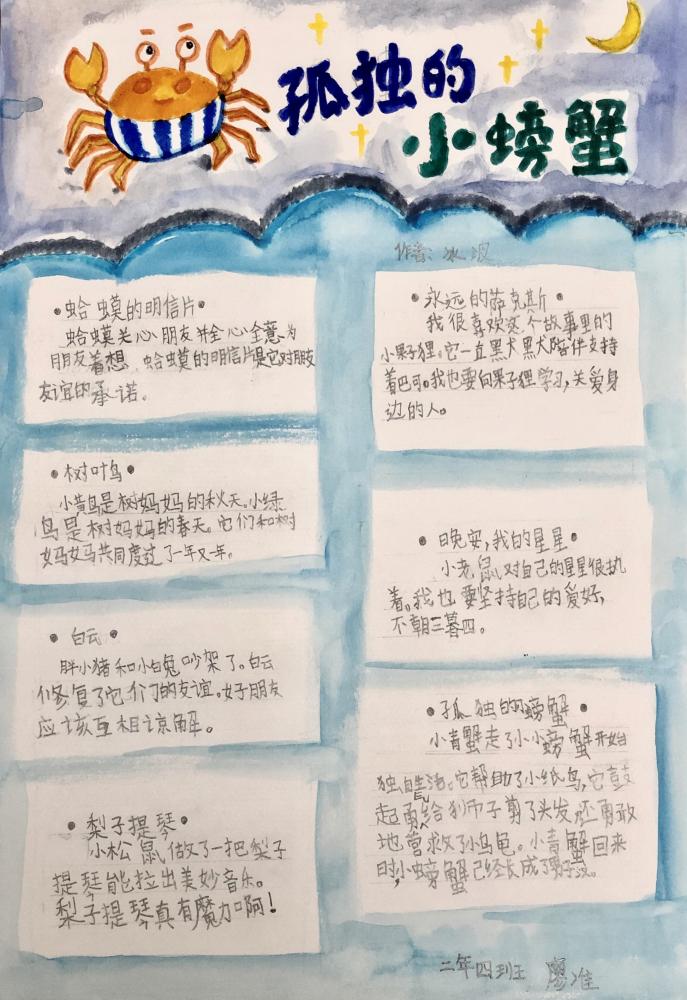 孤独的
小螃蟹
作者:冰波
•蛤蟆的明信片•
蛤蟆关心朋友并全心全意为
朋友着想,蛤蟆的明信片是它对朋友
友谊的承诺。
•树叶鸟•
小黄鸟是树妈妈的秋天。小绿
鸟是树妈妈的春天。它们和树
妈妈共同度过了一年又一年。
•白云•
胖小猪和小白兔吵架了。白云
修复了它们的友谊。好朋友
应该互相谅解。
•梨子提琴•
小松鼠做了一把梨子
提琴能拉出美妙音乐。
梨子提琴真有魔力啊!
•永远的萨克斯•
我很喜欢这个故事里的
小果子狸。它一直黑犬黑犬陪伴支持
着巴可。我也要向果子狸学习,关爱身
边的人。
•晚安,我的星星•
小老鼠对自己的星星很执
着。我也要坚持自己的爱好,
不朝三暮四。
•孤独的小螃蟹•
小青蟹走了小小螃蟹开始
独自生活。它帮助了小纸鸟,它鼓
起勇气给狮子剪了头发还勇敢
地营救了小乌龟。小青蟹回来
时,小螃蟹已经长成了男子汉。
二年四班 廖准